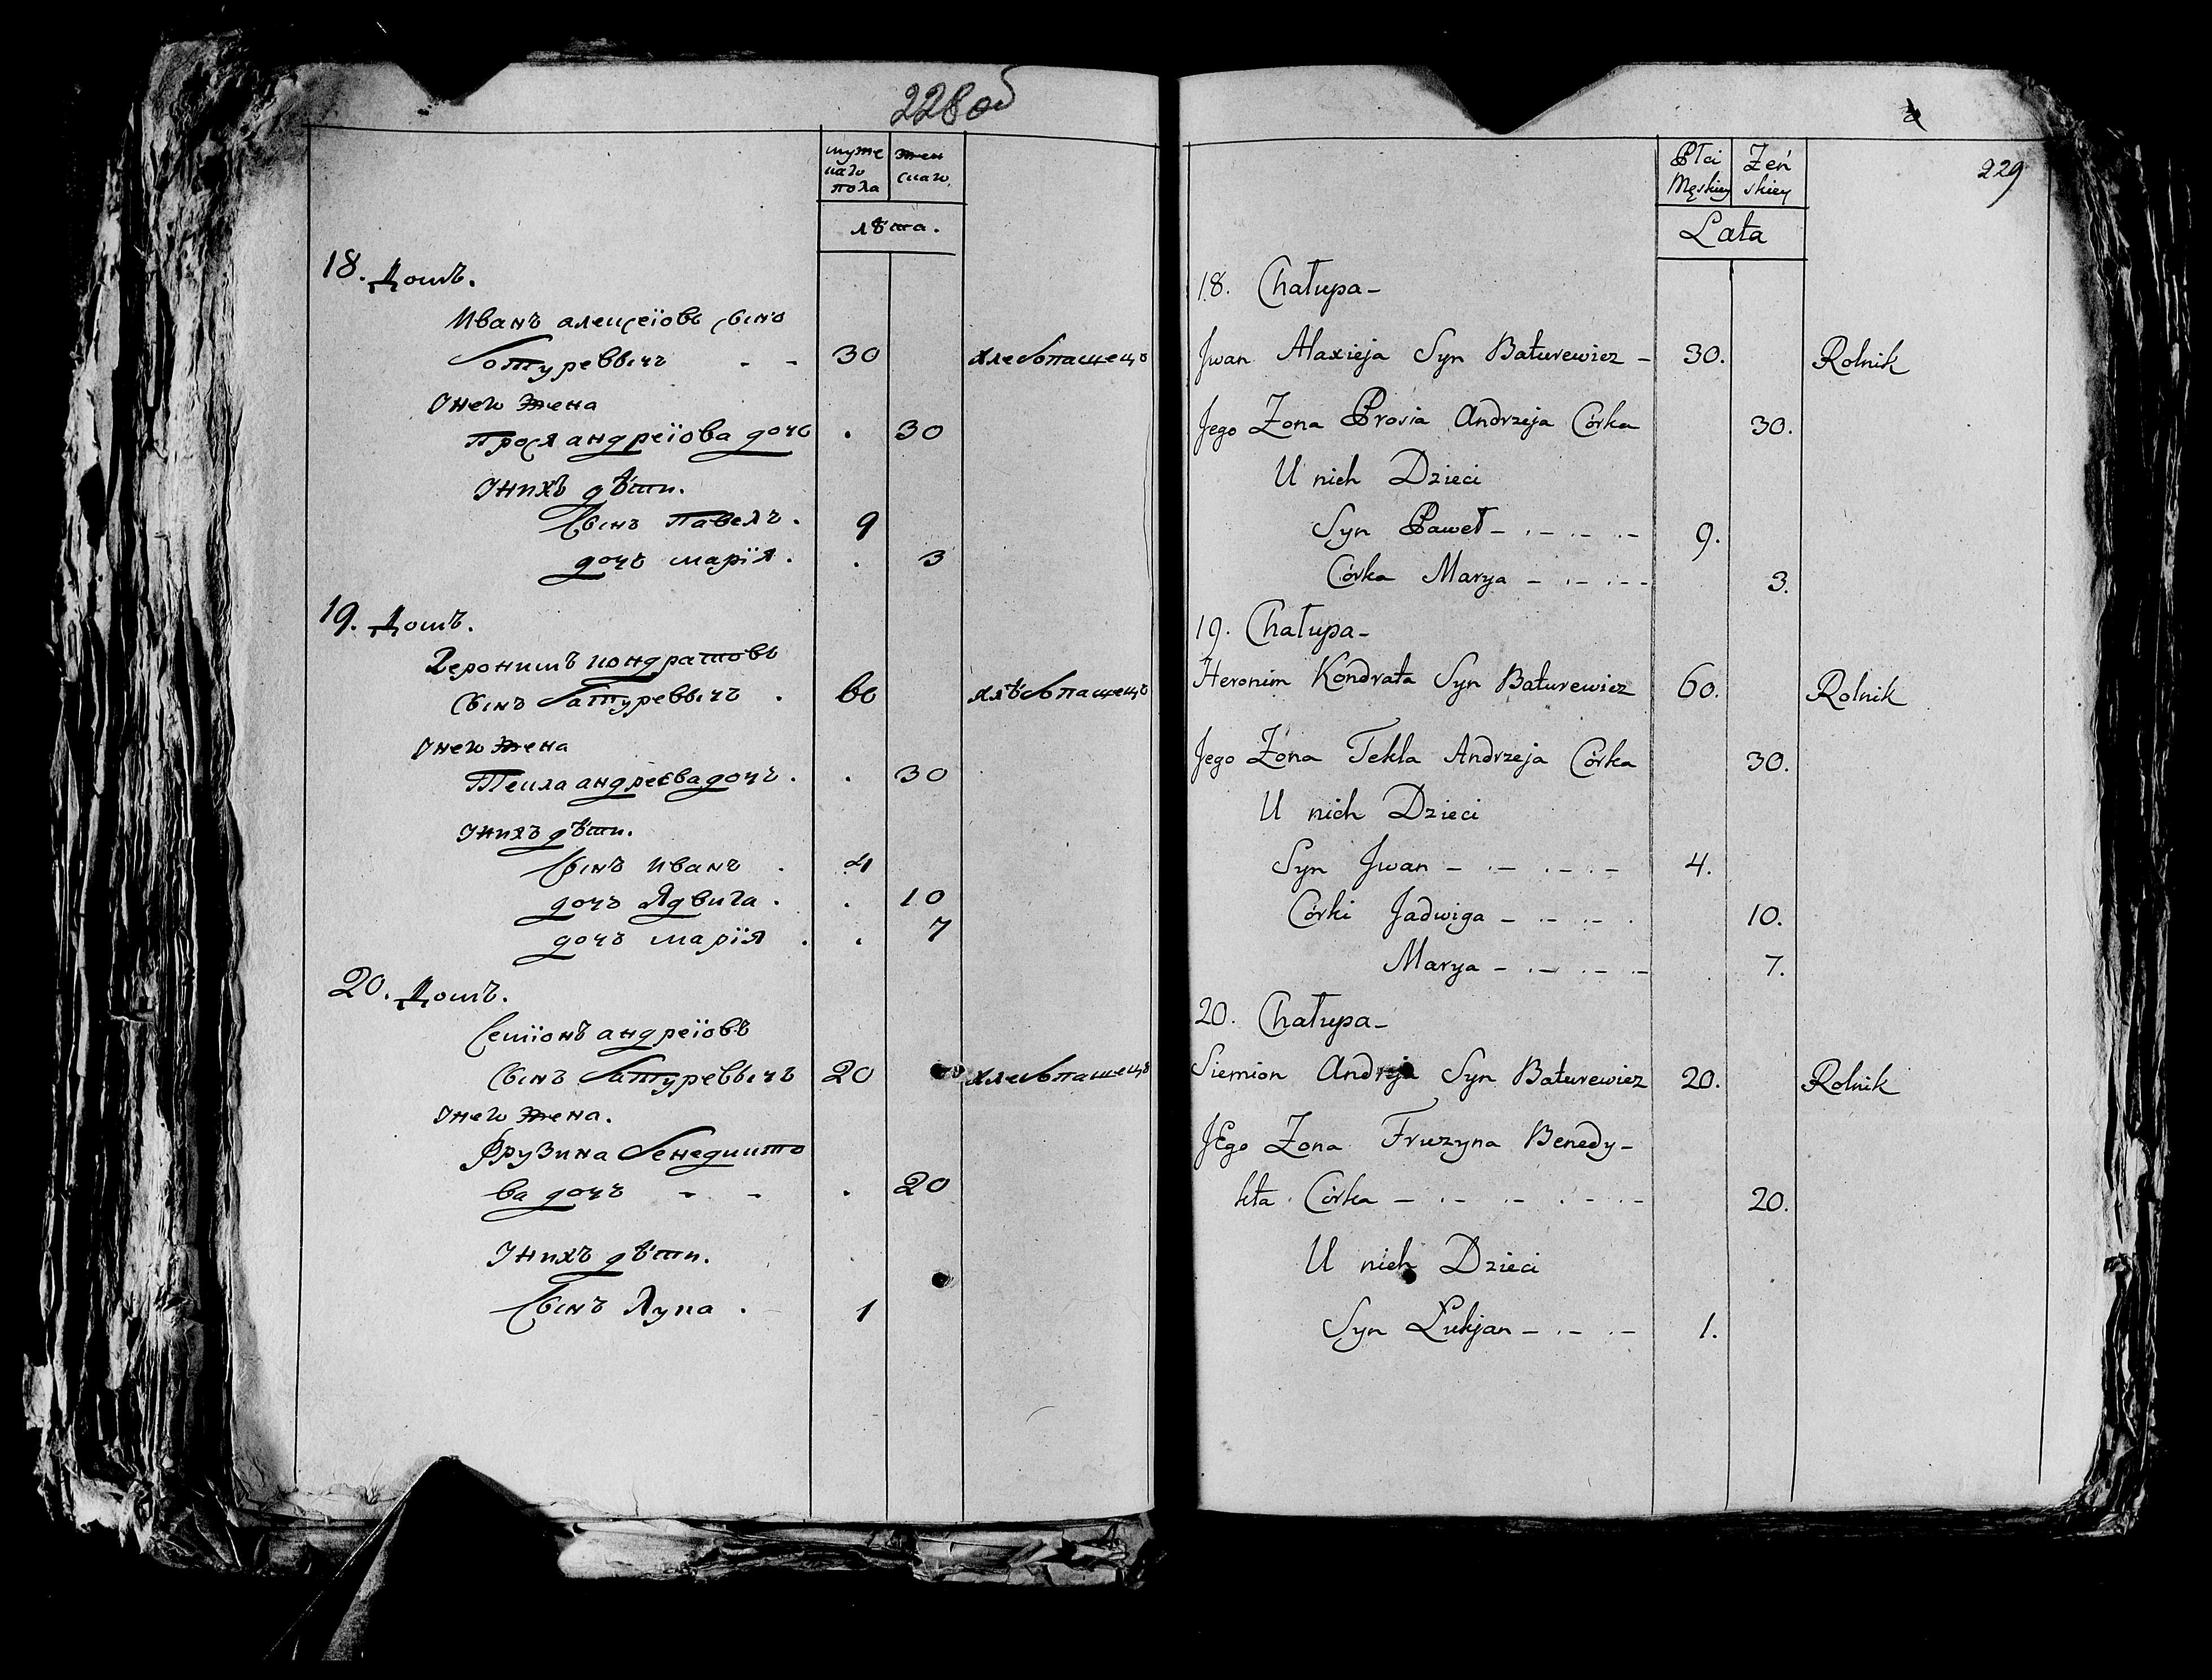 228 об
муже женъ
каго скаго
пола
лѣта.
18. Домъ.
Иванъ алексеіовъ сынъ
Батуревычъ - - 30 хлебопашецъ
Унего жена
Прося андреіова дочь . 30
Унихъ дѣти.
Сынъ Павелъ. 9
дочь марія. . 3
19. Домъ.
Геронимъ кондратовъ
сынъ Батуревычъ . 60 хлѣбопашецъ
Унего жена
Текла андреева дочь. . 30
Унихъ дѣти.
Сынъ Иванъ . 4
дочь Ядвига. . 10
дочь марія . . 7
20. Домъ.
Семіонъ андреіовъ
сынъ Батуревычъ 20 хлебопашецъ
Унего жена.
Фрузина Бенедикто
ва дочь - - . 20
Унихъ дѣти.
Сынъ Лука . 1
229
Płci Żeń
Męskiey skiey
Lata
18. Chałupa -
Jwan Alaxieja Syn Baturewicz - 30. Rolnik
Jego Żona Prosia Andrzeja Córka 30.
U nich Dzieci
Syn Paweł - . - . - . - 9.
Córka Marya - . - . - - 3.
19. Chałupa -
Heronim Kondrata Syn Baturewicz 60. Rolnik
Jego Żona Tekla Andrzeja Córka 30.
U nich Dzieci
Syn Jwan - . - . - . - 4.
Córki Jadwiga - . - . - . 10.
Marya - . - . - - 7.
20. Chałupa -
Siemion Andrzeja Syn Baturewicz 20. Rolnik
JEgo Żona Fruzyna Benedy-
kta Córka - . - . - . - . - 20.
U nich Dzieci
Syn Łukjan - . - . - 1.